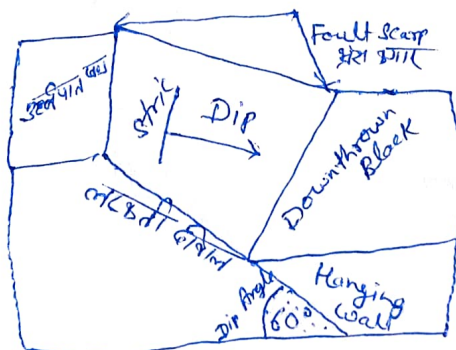 Fault Scarp
भ्रंश कगार
Stric
Dip
Downthrown
Block
लटकती दीवाल
Hanging
Wall
Dip Angle
60°